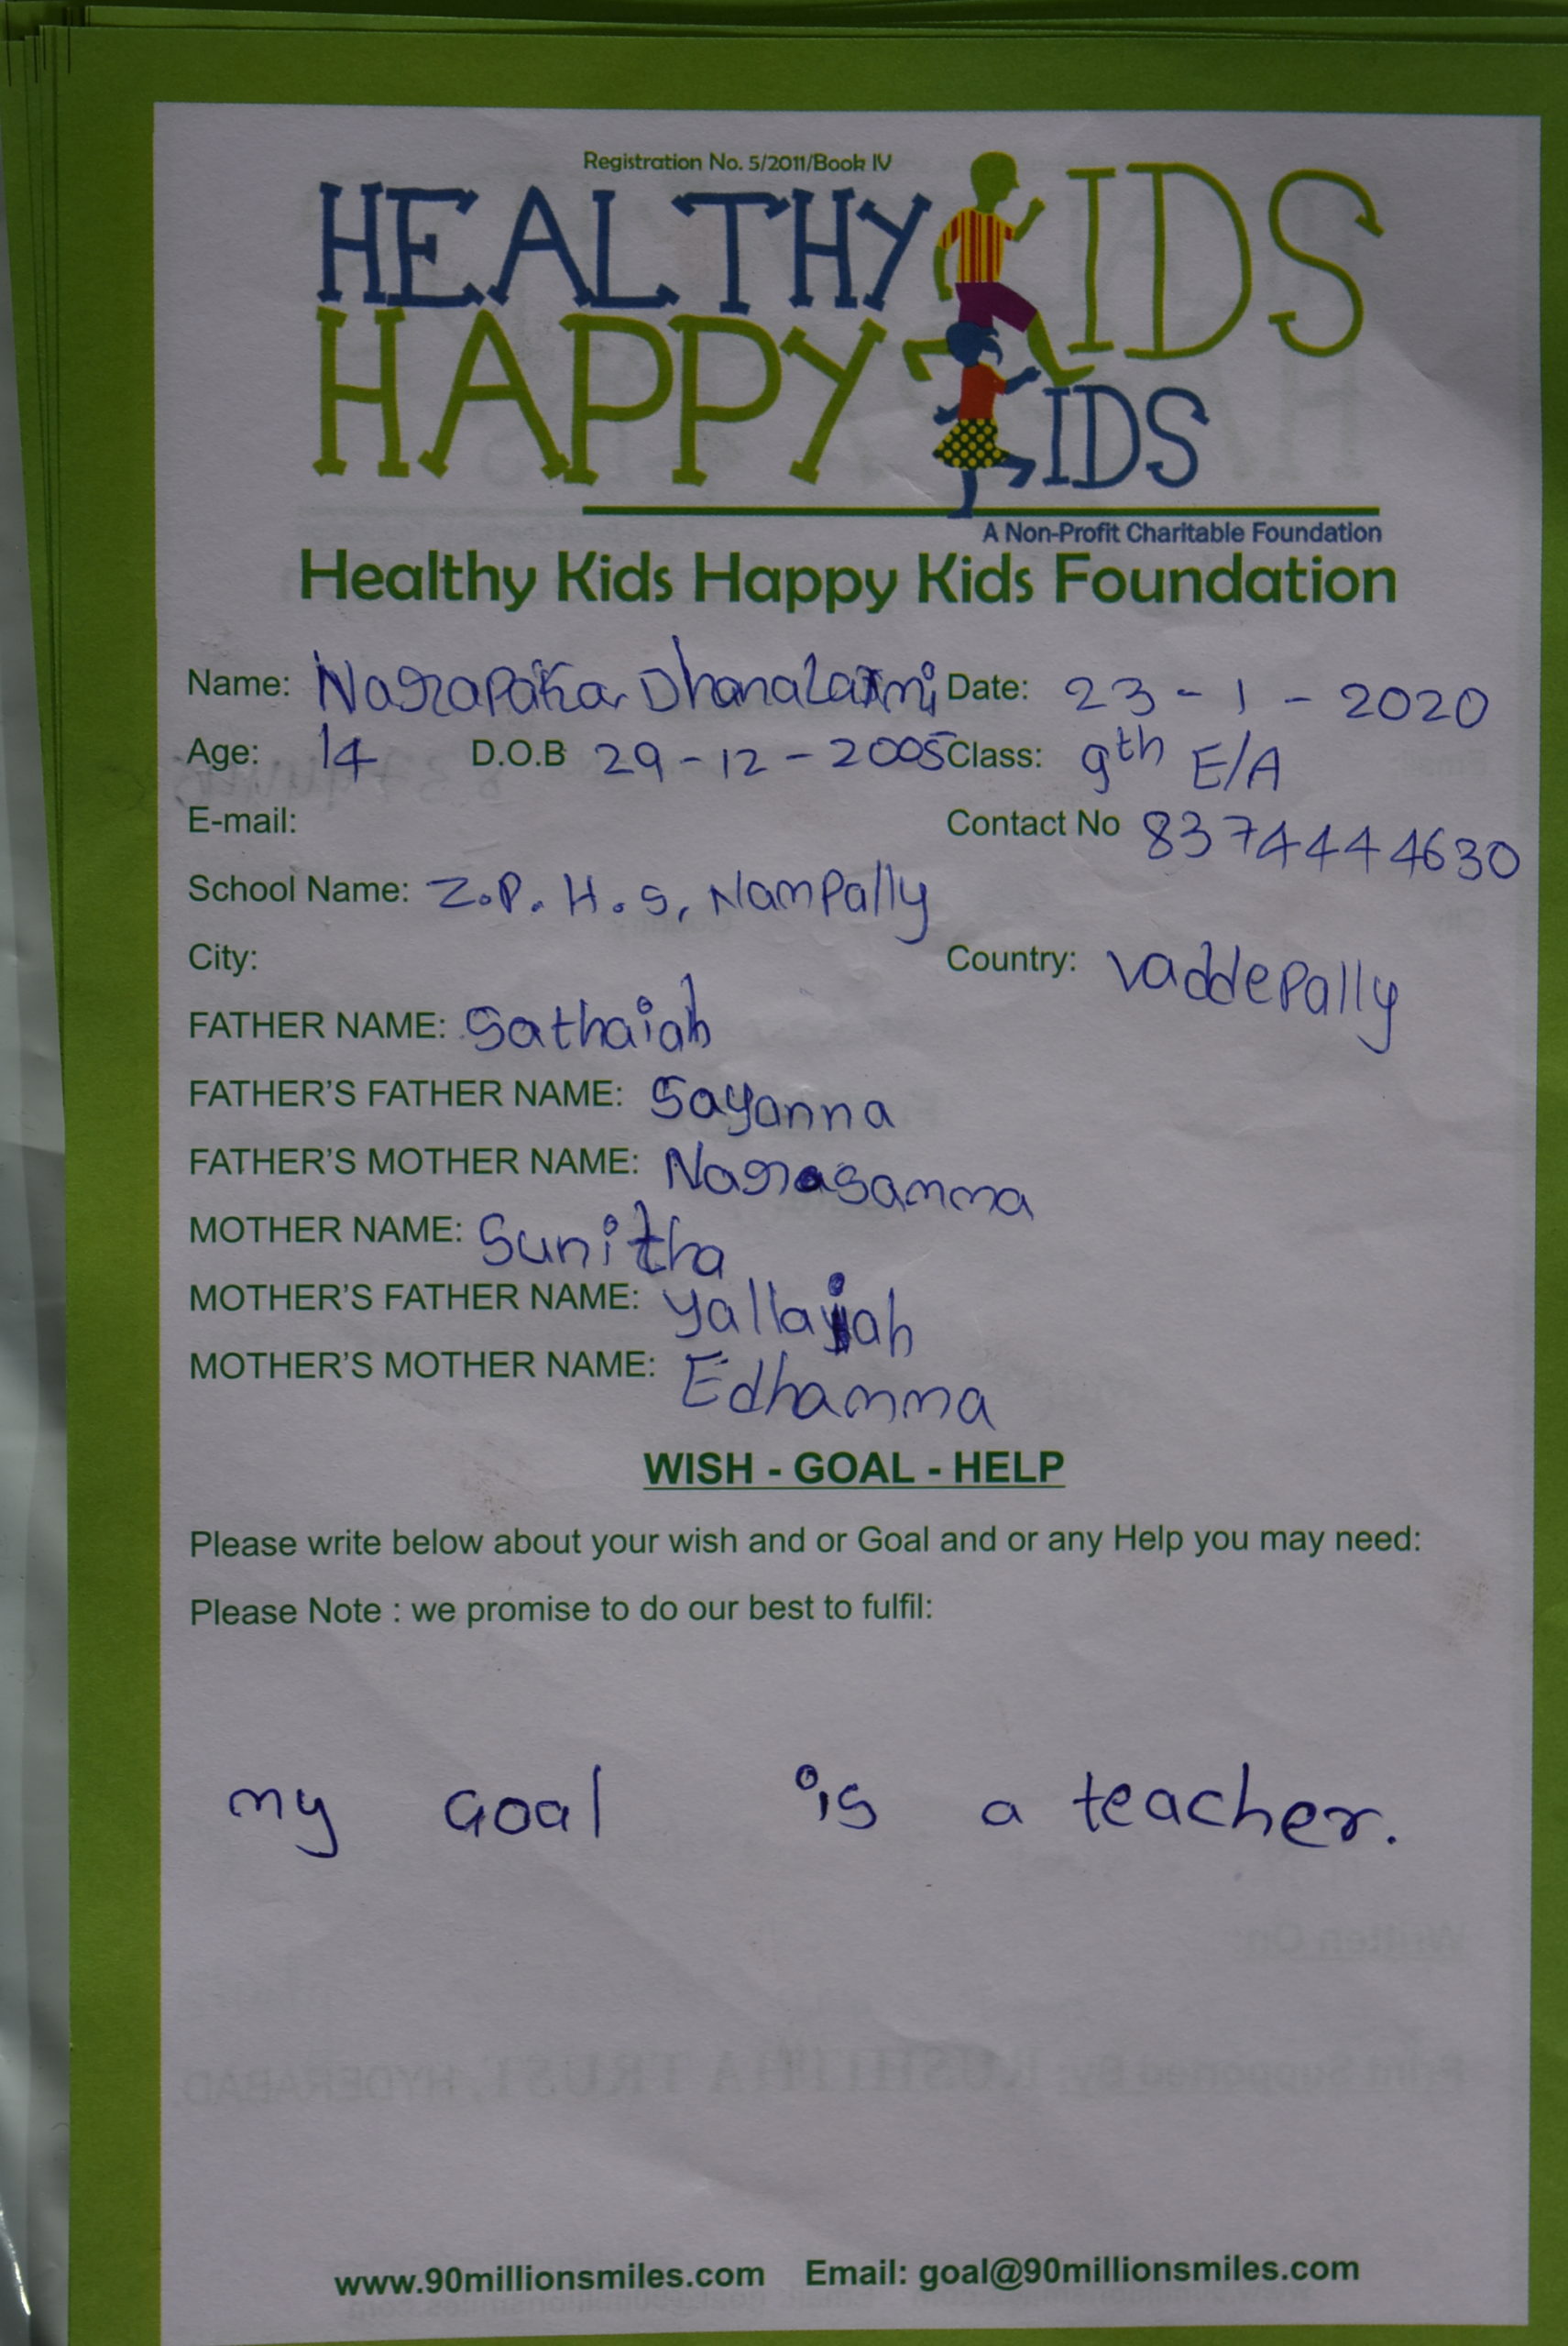 Registration No. 5/2011/Book IV
HEALTHY KIDS
HAPPY KIDS
A Non-Profit Charitable Foundation
Healthy Kids Happy Kids Foundation
Name: Narapaka Dhanalaxmi Date: 23-1-2020
Age: 14 D.O.B 29-12-2005 Class: 9th E/A
E-mail: Contact No 8374444630
School Name: Z.P.H.S, Nampally
City: Country: Vaddepally
FATHER NAME: Sathaiah
FATHER'S FATHER NAME: Sayanna
FATHER'S MOTHER NAME: Narasamma
MOTHER NAME: Sunitha
MOTHER'S FATHER NAME: Yallaiah
MOTHER'S MOTHER NAME: Edhamma
WISH - GOAL - HELP
Please write below about your wish and or Goal and or any Help you may need:
Please Note : we promise to do our best to fulfil:
my Goal is a teacher.
www.90millionsmiles.com Email: goal@90millionsmiles.com